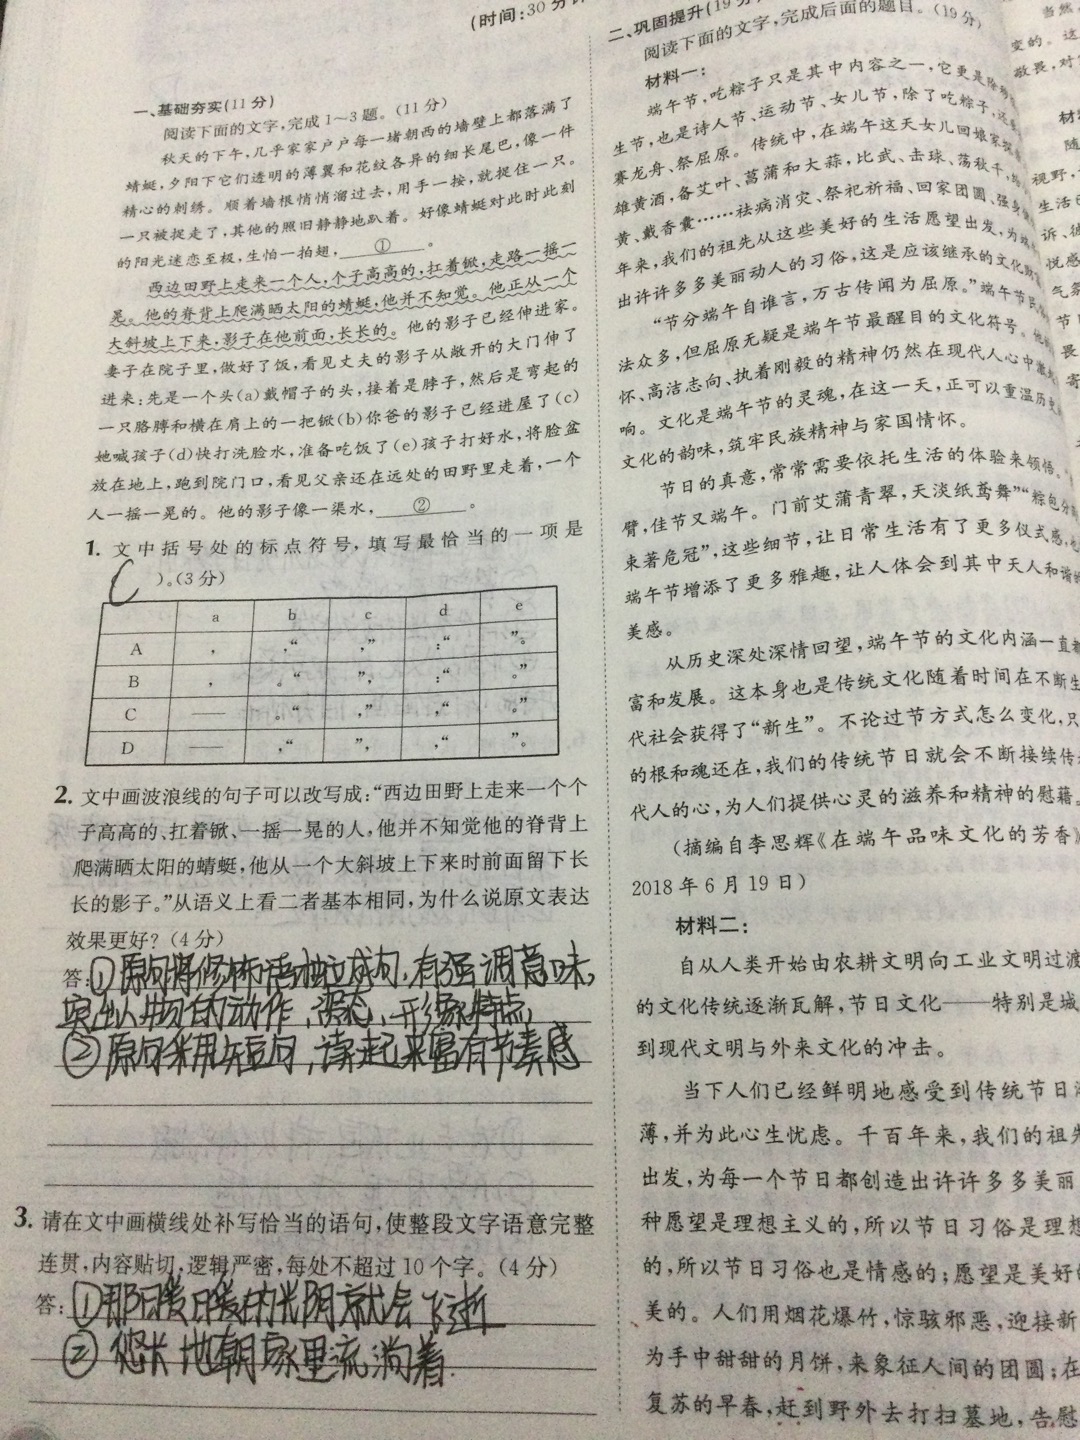 (时间:30分
一、基础夯实(11分)
阅读下面的文字,完成1～3题。(11分)
秋天的下午,几乎家家户户每一堵朝西的墙壁上都落满了
蜻蜓,夕阳下它们透明的薄翼和花纹各异的细长尾巴,像一件
精心的刺绣。顺着墙根悄悄溜过去,用手一按,就捉住一只。
一只被捉走了,其他的照旧静静地趴着。好像蜻蜓对此时此刻
的阳光迷恋至极,生怕一拍翅,①。
西边田野上走来一个人,个子高高的,扛着锨,走路一摇一
晃。他的脊背上爬满晒太阳的蜻蜓,他并不知觉。他正从一个
大斜坡上下来,影子在他前面,长长的。他的影子已经伸进家。
妻子在院子里,做好了饭,看见丈夫的影子从敞开的大门伸了
进来:先是一个头(a)戴帽子的头,接着是脖子,然后是弯起的
一只胳膊和横在肩上的一把锨(b)你爸的影子已经进屋了(c)
她喊孩子(d)快打洗脸水,准备吃饭了(e)孩子打好水,将脸盆
放在地上,跑到院门口,看见父亲还在远处的田野里走着,一个
人一摇一晃的。他的影子像一渠水,②。
1. 文中括号处的标点符号,填写最恰当的一项是
C )。(3分)
a b c d e
A , ,“ ,” :“ ”。
B , 。“ ”, :“ 。”
C —— 。“ ,” ,“ 。”
D —— ,“ ”, ,“ ”。
2. 文中画波浪线的句子可以改写成:“西边田野上走来一个个
子高高的、扛着锨、一摇一晃的人,他并不知觉他的脊背上
爬满晒太阳的蜻蜓,他从一个大斜坡上下来时前面留下长
长的影子。”从语义上看二者基本相同,为什么说原文表达
效果更好? (4分)
答:①原句将修饰语独立成句,有强调意味,
突出人物的动作,状态,形象特点,
②原句采用短句,读起来富有节奏感
3. 请在文中画横线处补写恰当的语句,使整段文字语意完整
连贯,内容贴切,逻辑严密,每处不超过10个字。(4分)
答:①那日暖日暖的光阴就会飞逝
②悠长地朝家里流淌着.
二、巩固提升(19分)
阅读下面的文字,完成后面的题目。(19分)
材料一:
端午节,吃粽子只是其中内容之一,它更是
生节,也是诗人节、运动节、女儿节,除了吃粽子,
赛龙舟、祭屈原。传统中,在端午这天女儿回娘家
雄黄酒,备艾叶、菖蒲和大蒜,比武、击球、荡秋千,
黄、戴香囊……祛病消灾、祭祀祈福、回家团圆、强身
年来,我们的祖先从这些美好的生活愿望出发,为
出许许多多美丽动人的习俗,这是应该继承的文化
“节分端午自谁言,万古传闻为屈原。”端午节民俗
法众多,但屈原无疑是端午节最醒目的文化符号。他
怀、高洁志向、执着刚毅的精神仍然在现代人心中激
响。文化是端午节的灵魂,在这一天,正可以重温历史
文化的韵味,筑牢民族精神与家国情怀。
节日的真意,常常需要依托生活的体验来领悟。
臂,佳节又端午。门前艾蒲青翠,天淡纸鸢舞”“粽包分
束著危冠”,这些细节,让日常生活有了更多仪式感,也
端午节增添了更多雅趣,让人体会到其中天人和谐的
美感。
从历史深处深情回望,端午节的文化内涵一直都
富和发展。这本身也是传统文化随着时间在不断生
代社会获得了“新生”。不论过节方式怎么变化,只
的根和魂还在,我们的传统节日就会不断接续传
代人的心,为人们提供心灵的滋养和精神的慰藉。
(摘编自李思辉《在端午品味文化的芳香》
2018年6月19日)
材料二:
自从人类开始由农耕文明向工业文明过渡
的文化传统逐渐瓦解,节日文化——特别是城
到现代文明与外来文化的冲击。
当下人们已经鲜明地感受到传统节日
薄,并为此心生忧虑。千百年来,我们的祖先
出发,为每一个节日都创造出许许多多美丽
种愿望是理想主义的,所以节日习俗是理想
的,所以节日习俗也是情感的;愿望是美好的
美的。人们用烟花爆竹,惊骇邪恶,迎接新
为手中甜甜的月饼,来象征人间的团圆;在
复苏的早春,赶到野外去打扫墓地,告慰
当然
变的。这
敬畏,对
材
随
视野,
生活
诉、
悦感
气氛
节日
畏
寄